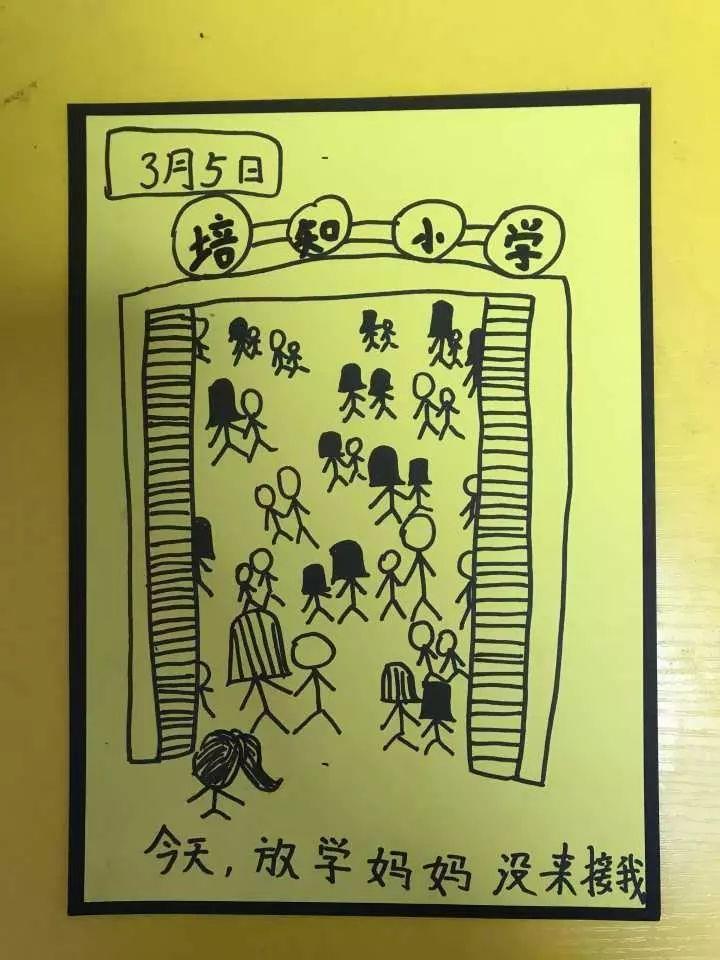 3月5日
培知小学
今天,放学妈妈没来接我